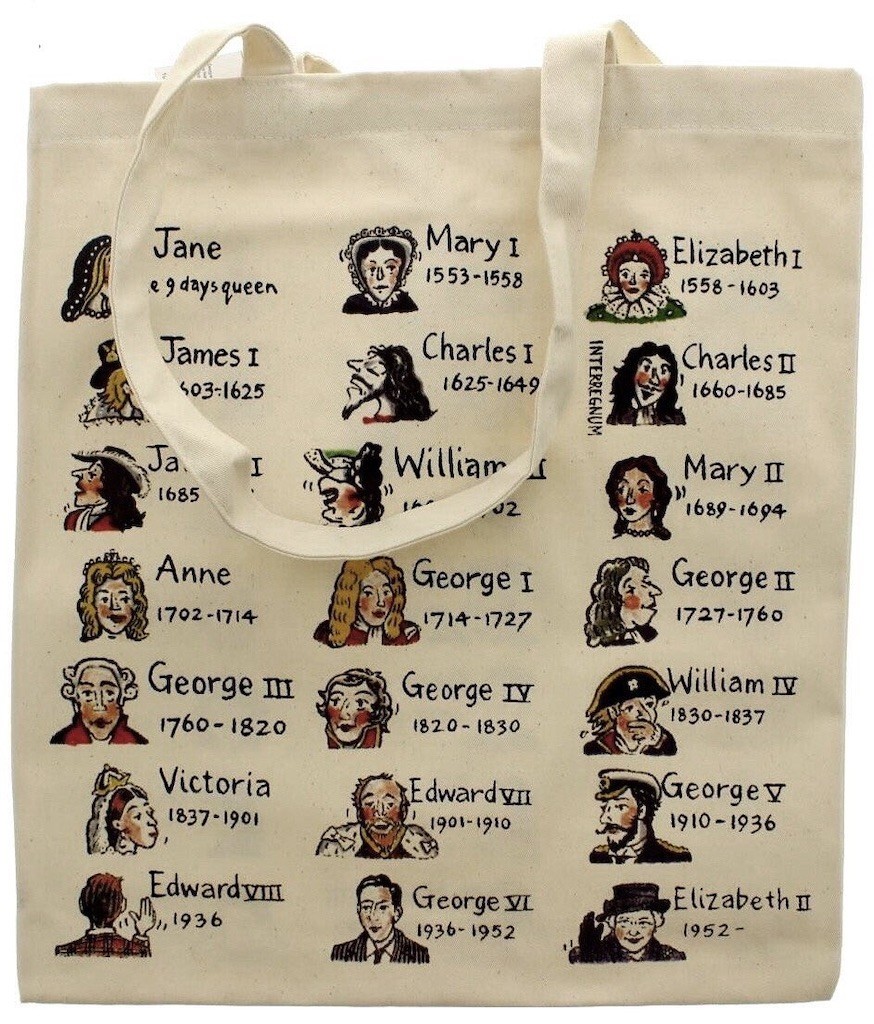 Jane
9 days queen
Mary I
1553-1558
Elizabeth I
1558-1603
James I
603-1625
Charles I
1625-1649
INTERREGNUM
Charles II
1660-1685
Ja I
1685
William
02
Mary II
1689-1694
Anne
1702-1714
George I
1714-1727
George II
1727-1760
George III
1760-1820
George IV
1820-1830
William IV
1830-1837
Victoria
1837-1901
Edward VII
1901-1910
George V
1910-1936
Edward VIII
1936
George VI
1936-1952
Elizabeth II
1952-